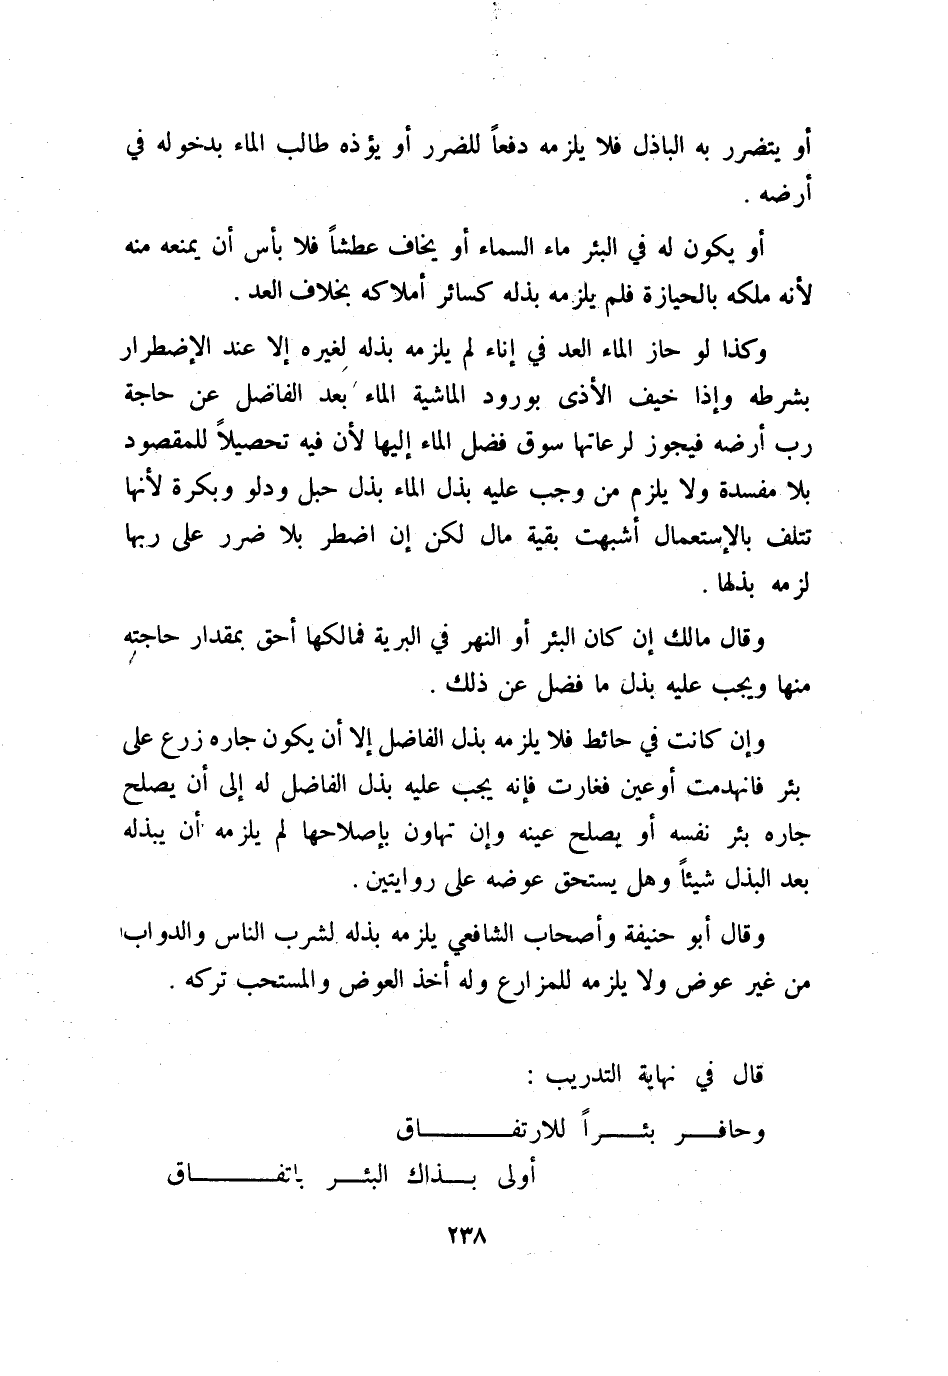 أو يتضرر به الباذل فلا يلزمه دفعاً للضرر أو يؤذه طالب الماء بدخوله في
أرضه .
أو يكون له في البئر ماء السماء أو يخاف عطشاً فلا بأس أن يمنعه منه
لأنه ملكه بالحيازة فلم يلزمه بذله كسائر أملاكه بخلاف العد .
وكذا لو حاز الماء العد في إناء لم يلزمه بذله لغيره إلا عند الإضطرار
بشرطه وإذا خيف الأذى بورود الماشية الماء بعد الفاضل عن حاجة
رب أرضه فيجوز لرعاتها سوق فضل الماء إليها لأن فيه تحصيلاً للمقصود
بلا مفسدة ولا يلزم من وجب عليه بذل الماء بذل حبل ودلو وبكرة لأنها
تتلف بالإستعمال أشبهت بقية مال لكن إن اضطر بلا ضرر على ربها
لزمه بذلها .
وقال مالك إن كان البئر أو النهر في البرية فمالكها أحق بمقدار حاجته
منها ويجب عليه بذل ما فضل عن ذلك .
وإن كانت في حائط فلا يلزمه بذل الفاضل إلا أن يكون جاره زرع على
بئر فانهدمت أوعين فغارت فإنه يجب عليه بذل الفاضل له إلى أن يصلح
جاره بئر نفسه أو يصلح عينه وإن تهاون بإصلاحها لم يلزمه أن يبذله
بعد البذل شيئاً وهل يستحق عوضه على روايتين .
وقال أبو حنيفة وأصحاب الشافعي يلزمه بذله لشرب الناس والدواب
من غير عوض ولا يلزمه للمزارع وله أخذ العوض والمستحب تركه .
قال في نهاية التدريب :
وحافـــر بئـــراً للارتفـــــــاق
أولى بـــذاك البئـــر باتفـــــــاق
٢٣٨